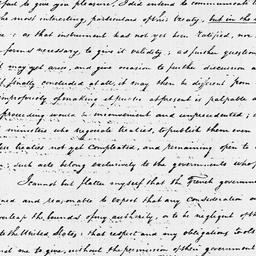 fail to give you pleasure, I did intend to communicate t
he most interesting particulars of this treaty, but in the m
as that instrument has not yet been ratified, nor
forms necessary, to give it validity; as further question
it may yet arise, and give occasion to further discussion a
if finally concluded at all, it may then be different from
impropriety of making it public at present is palpable a
proceeding would be inconvenient and unprecedented;
ministers who negociate treaties, to publish them even
treaties not yet compleated, and remaining open to
such acts belong exclusively to the governments who
I cannot but flatter myself that the French governm
and reasonable to expect that any consideration
overleap the bounds of my authority, or to be negligent of th
to the United States, that respect and my obligations to th
not me to give, without the permission of their government